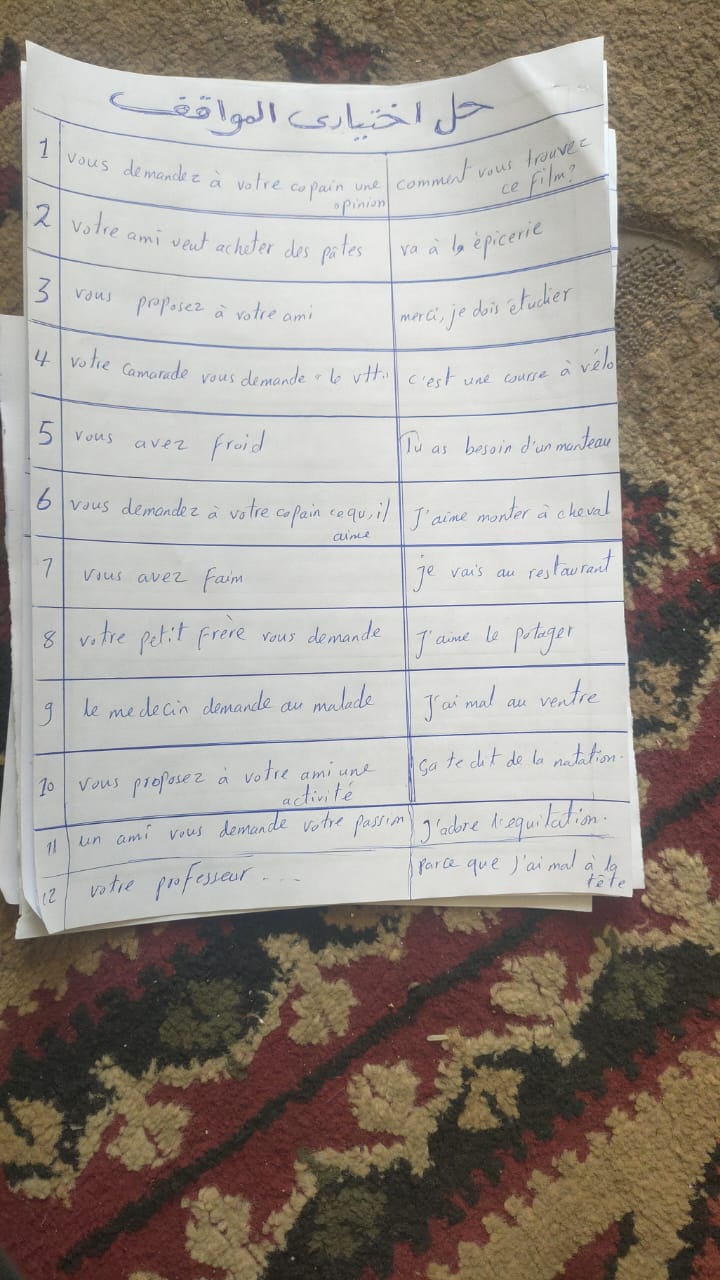 حل اختيارى المواقف
1 vous demandez à votre copain une opinion comment vous trouvez ce film?
2 votre ami veut acheter des pâtes va à la èpicerie
3 vous proposez à votre ami merci, je dois étudier
4 votre camarade vous demande "le vtt" c'est une course à vélo
5 vous avez froid Tu as besoin d'un manteau
6 vous demandez à votre copain ce qu'il aime J'aime monter à cheval
7 vous avez faim je vais au restaurant
8 votre petit frère vous demande J'aime le potager
9 le medecin demande au malade J'ai mal au ventre
10 vous proposez à votre ami une activité ça te dit de la natation.
11 un ami vous demande votre passion J'adore l'equitation.
12 votre professeur ... parce que J'ai mal à la tête